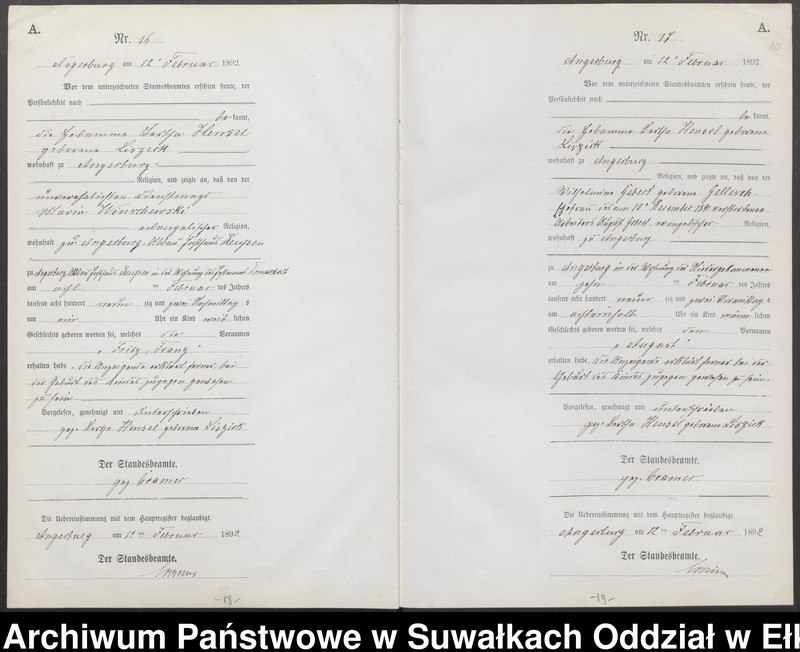 A.
Nr. 16
Angerburg am 12 Februar 1892.
Vor dem unterzeichneten Standesbeamten erschien heute, der
Persönlichkeit nach
be kannt,
die Hebamme Bertha Hensel
geborene Liszick
wohnhaft zu Angerburg
Religion, und zeigte an, daß von der
unverehelichten Dienstmagd
Maria
evangelischer Religion,
wohnhaft zu Angerburg
zu Angerburg in der Wohnung des
am acht ten Februar des Jahres
tausend acht hundert neun zig und zwei Nachmittags
um ein Uhr ein Kind männlichen
Geschlechts geboren worden sei, welches die Vornamen
"Fritz, Franz"
erhalten habe. Die Anzeigende erklärt ferner, bei
der Geburt des Kindes zugegen gewesen
zu sein.
Vorgelesen, genehmigt und unterschrieben
gez. Bertha Hensel geborene Liszick
Der Standesbeamte.
gez. Cramer
Die Uebereinstimmung mit dem Hauptregister beglaubigt.
Angerburg am 12 ten Februar 1892
Der Standesbeamte.
Cramer
-18-
A.
10
Nr. 17
Angerburg am 12 Februar 1892.
Vor dem unterzeichneten Standesbeamten erschien heute, der
Persönlichkeit nach
be kannt,
die Hebamme Bertha Hensel geborene
Liszick
wohnhaft zu Angerburg
Religion, und zeigte an, daß von der
Wilhelmine Gebert geborene
Ehefrau des am 10 Dezember 1891 verstorbenen
Arbeiters August Gebert evangelischer Religion,
wohnhaft zu Angerburg
zu Angerburg in der Wohnung der
am zehn ten Februar des Jahres
tausend acht hundert neun zig und zwei Vormittags
um Uhr ein Kind männlichen
Geschlechts geboren worden sei, welches den Vornamen
"August"
erhalten habe. Die Anzeigende erklärt ferner bei der
Geburt des Kindes zugegen gewesen zu sein.
Vorgelesen, genehmigt und unterschrieben
gez. Bertha Hensel geborene Liszick
Der Standesbeamte.
gez. Cramer
Die Uebereinstimmung mit dem Hauptregister beglaubigt.
Angerburg am 12 ten Februar 1892
Der Standesbeamte.
Cramer
-19-
Archiwum Państwowe w Suwałkach Oddział w Ełk